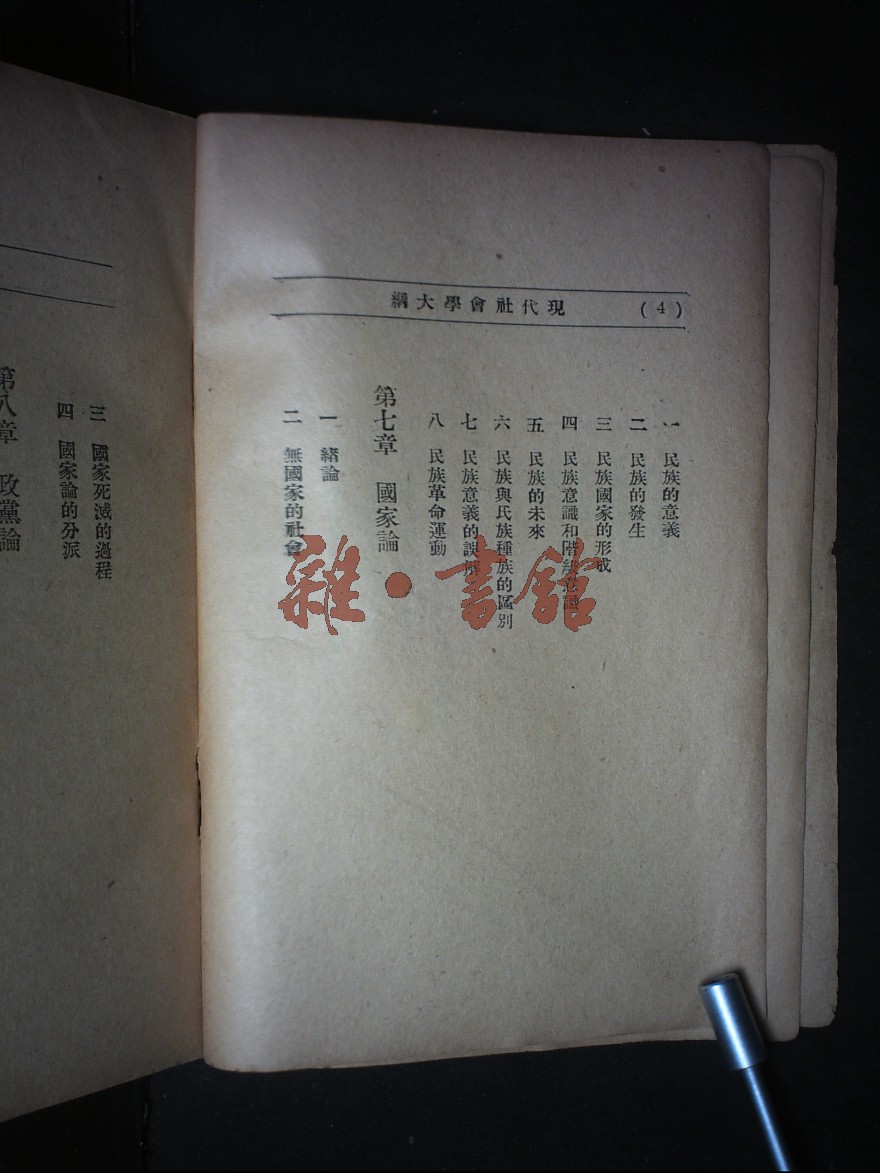 現代社會學大綱 (4)
一 民族的意義
二 民族的發生
三 民族國家的形成
四 民族意識和階級意識
五 民族的未來
六 民族與民族種族的區別
七 民族意義的誤解
八 民族革命運動
第七章 國家論
一 緒論
二 無國家的社會
三 國家死滅的過程
四 國家論的分派
第八章 政黨論
雜·書館